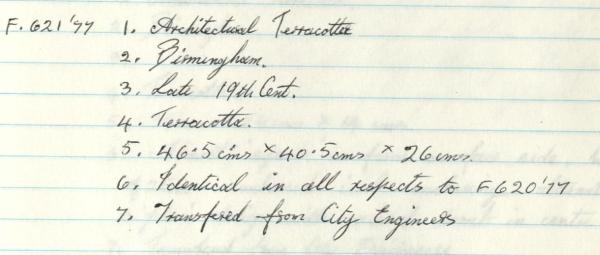 F. 621'77 1. Architectural Terracotta
2. Birmingham.
3. Late 19th Cent.
4. Terracotta.
5. 46.5cms × 40.5cms × 26cms.
6. Identical in all respects to F620'77
7. Transfered from City Engineers